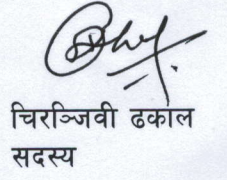 चिरञ्जिवी ढकाल
सदस्य